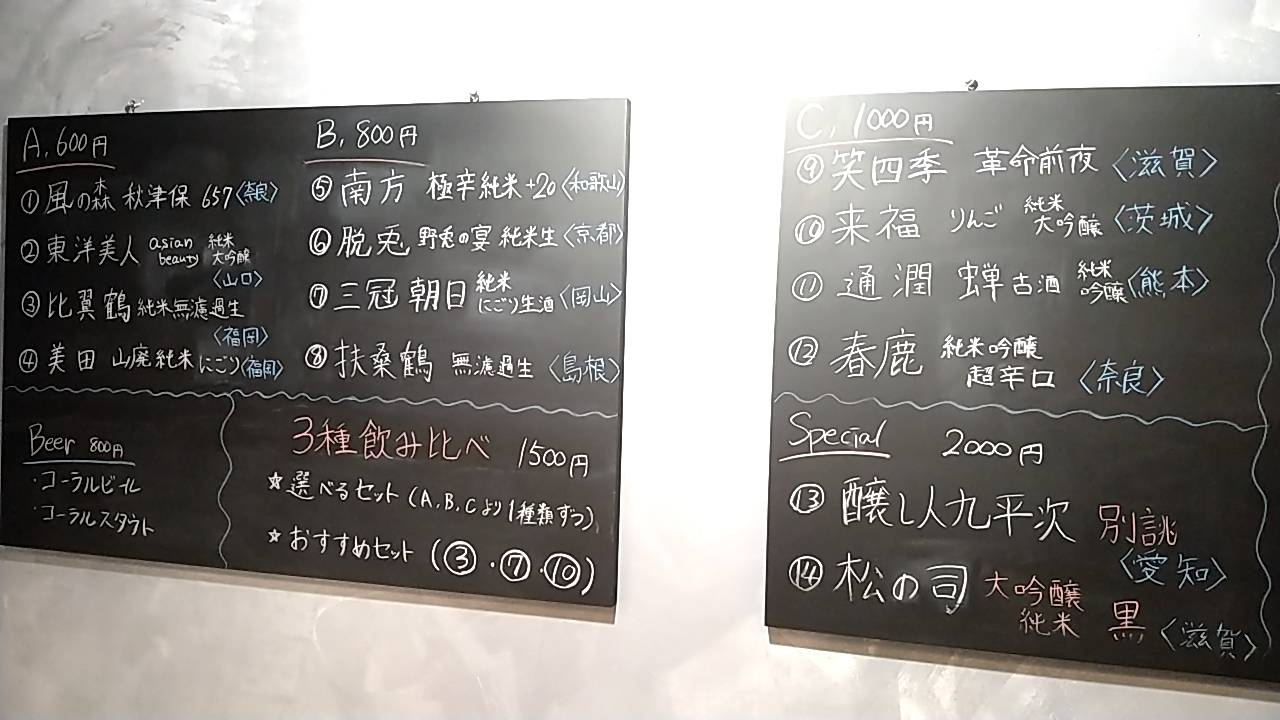 A. 600円
① 風の森 秋津保 657〈奈良〉
② 東洋美人 asian beauty 純米大吟醸
〈山口〉
③ 比翼鶴 純米無濾過生
〈福岡〉
④ 美田 山廃純米にごり〈福岡〉
B. 800円
⑤ 南方 極辛純米+20〈和歌山〉
⑥ 脱兎 野兎の宴 純米生〈京都〉
⑦ 三冠 朝日 純米にごり生酒〈岡山〉
⑧ 扶桑鶴 無濾過生〈島根〉
Beer 800円
・コーラルビール
・コーラルスタウト
3種飲み比べ 1500円
☆選べるセット(A,B,Cより1種類ずつ)
☆おすすめセット(③・⑦・⑩)
C. 1000円
⑨ 笑四季 革命前夜〈滋賀〉
⑩ 来福 りんご 純米大吟醸〈茨城〉
⑪ 通潤 蝉 古酒 純米吟醸〈熊本〉
⑫ 春鹿 純米吟醸
超辛口〈奈良〉
Special 2000円
⑬ 醸し人九平次 別誂
〈愛知〉
⑭ 松の司 大吟醸純米 黒〈滋賀〉